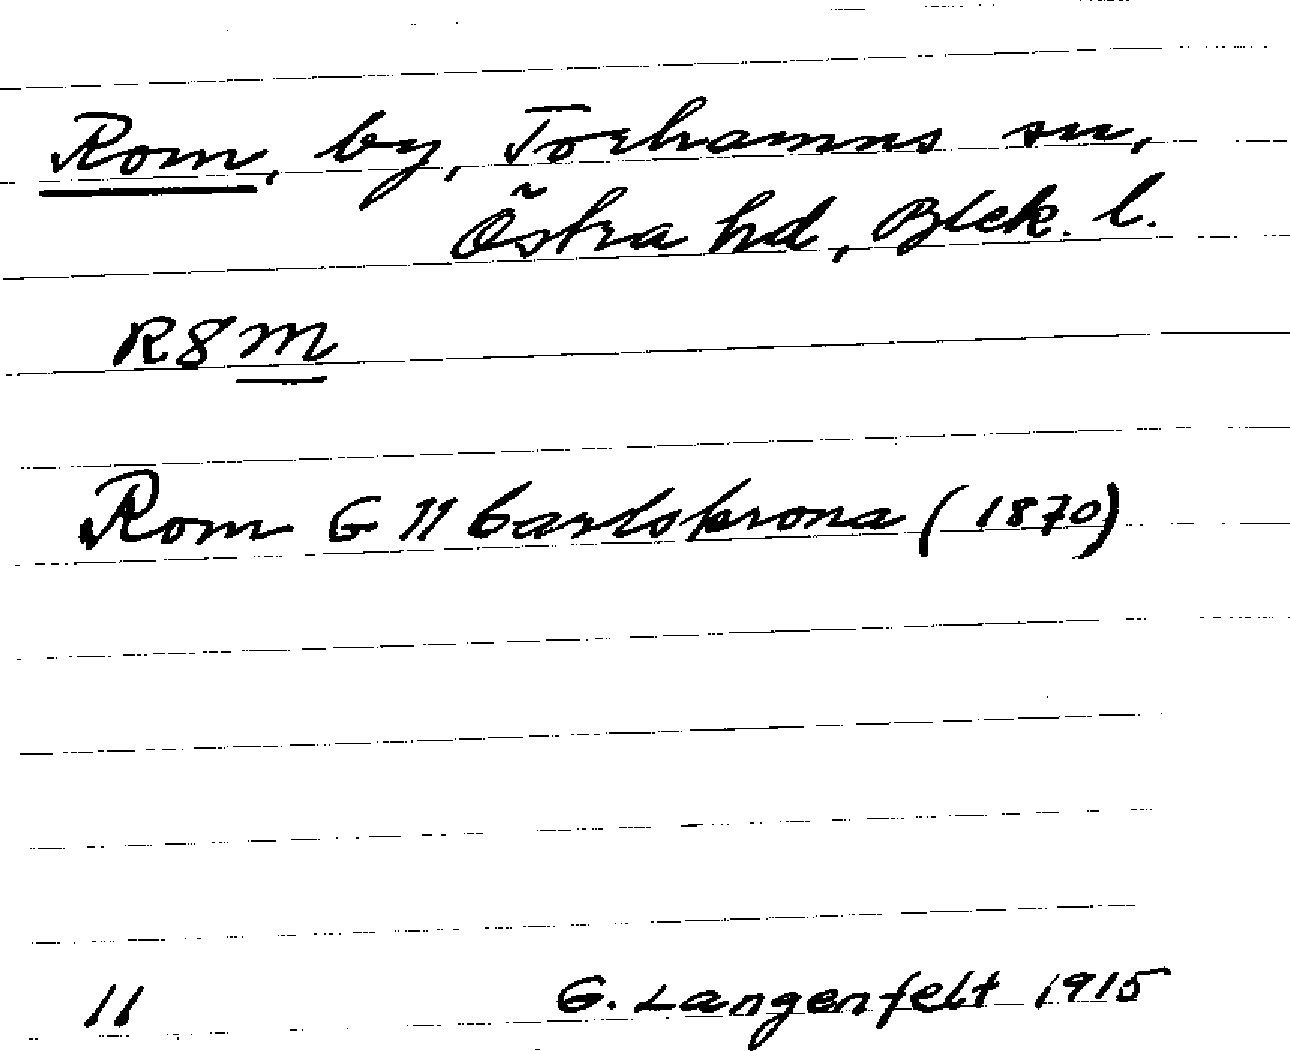 Rom, by, Torhamns sn,
Östra hd, Blek. l.
R8m
Rom G 11 Carlskrona (1870)
11 G. Langenfelt 1915